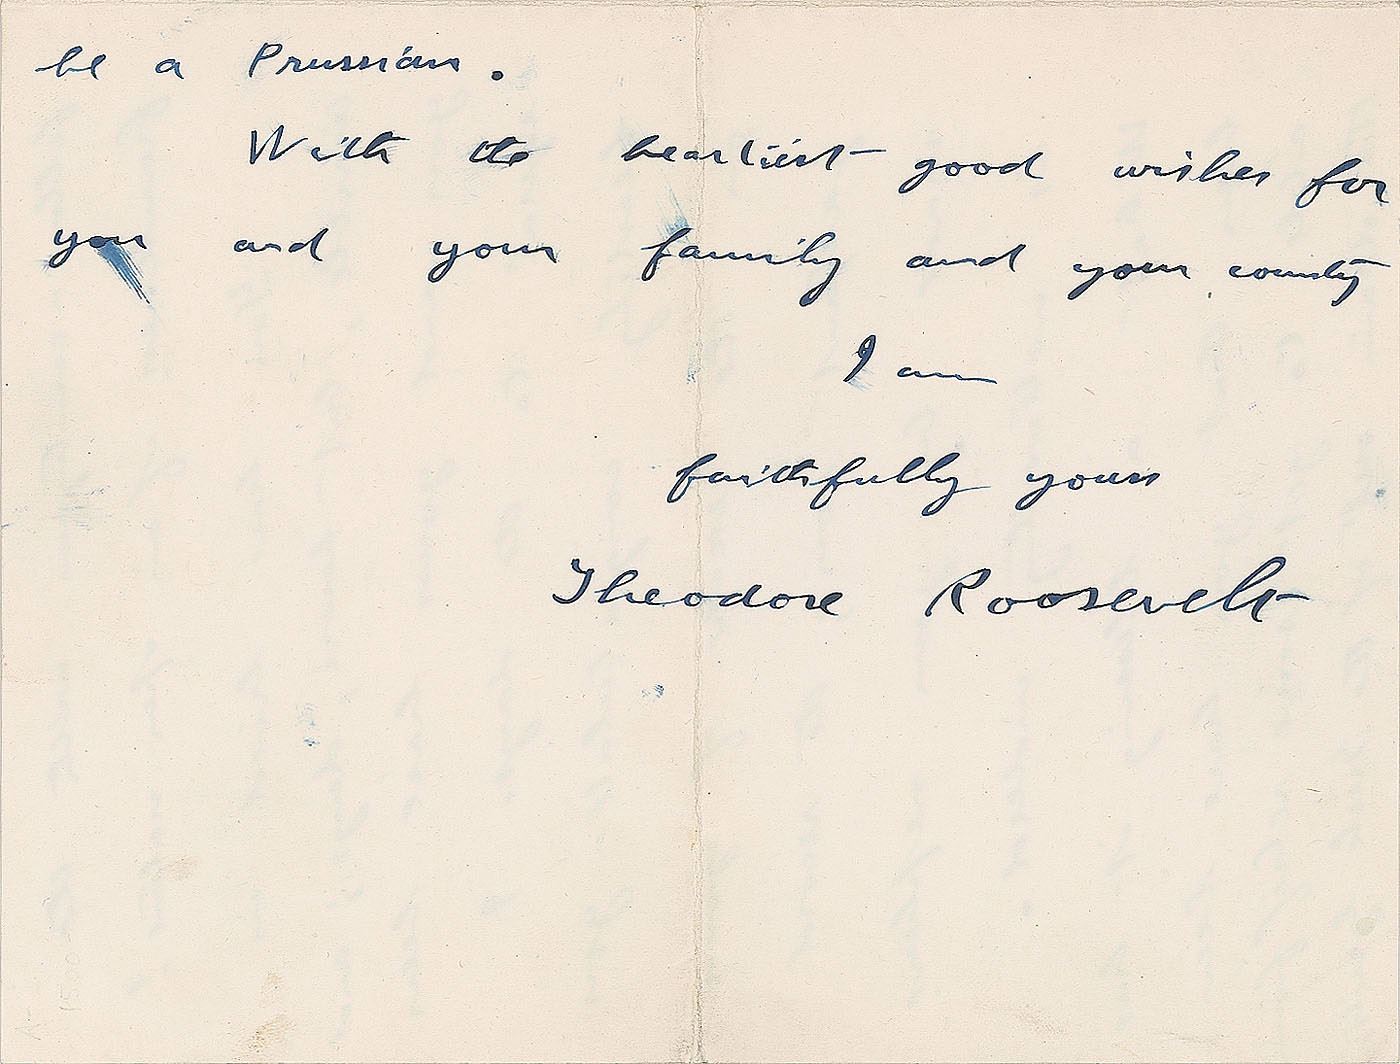 be a Prussian.
With the heartiest good wishes for
you and your family and your country
I am
faithfully yours
Theodore Roosevelt